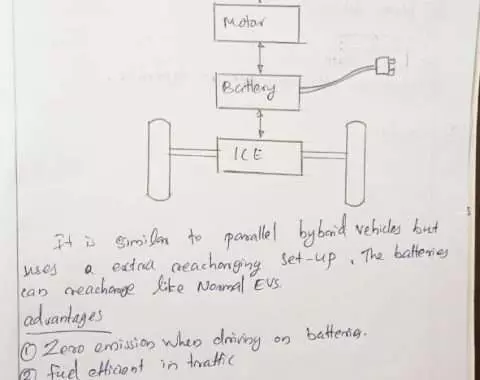 Motor
Battery
ICE
It is similar to parallel hybrid vehicles but
uses a extra reacharging set-up. The batteries
can reacharge like Normal EVs.
advantages
① Zero emission when driving on batteries.
② Fuel efficient in traffic